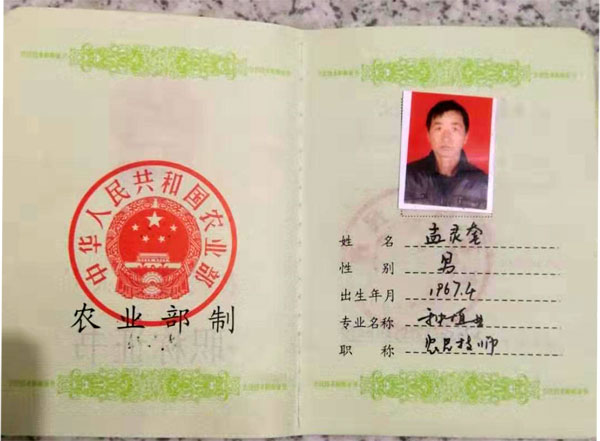 中华人民共和国农业部
农业部制
姓名 孟灵奎
性别 男
出生年月 1967.4
专业名称 种植业
职称 农民技师